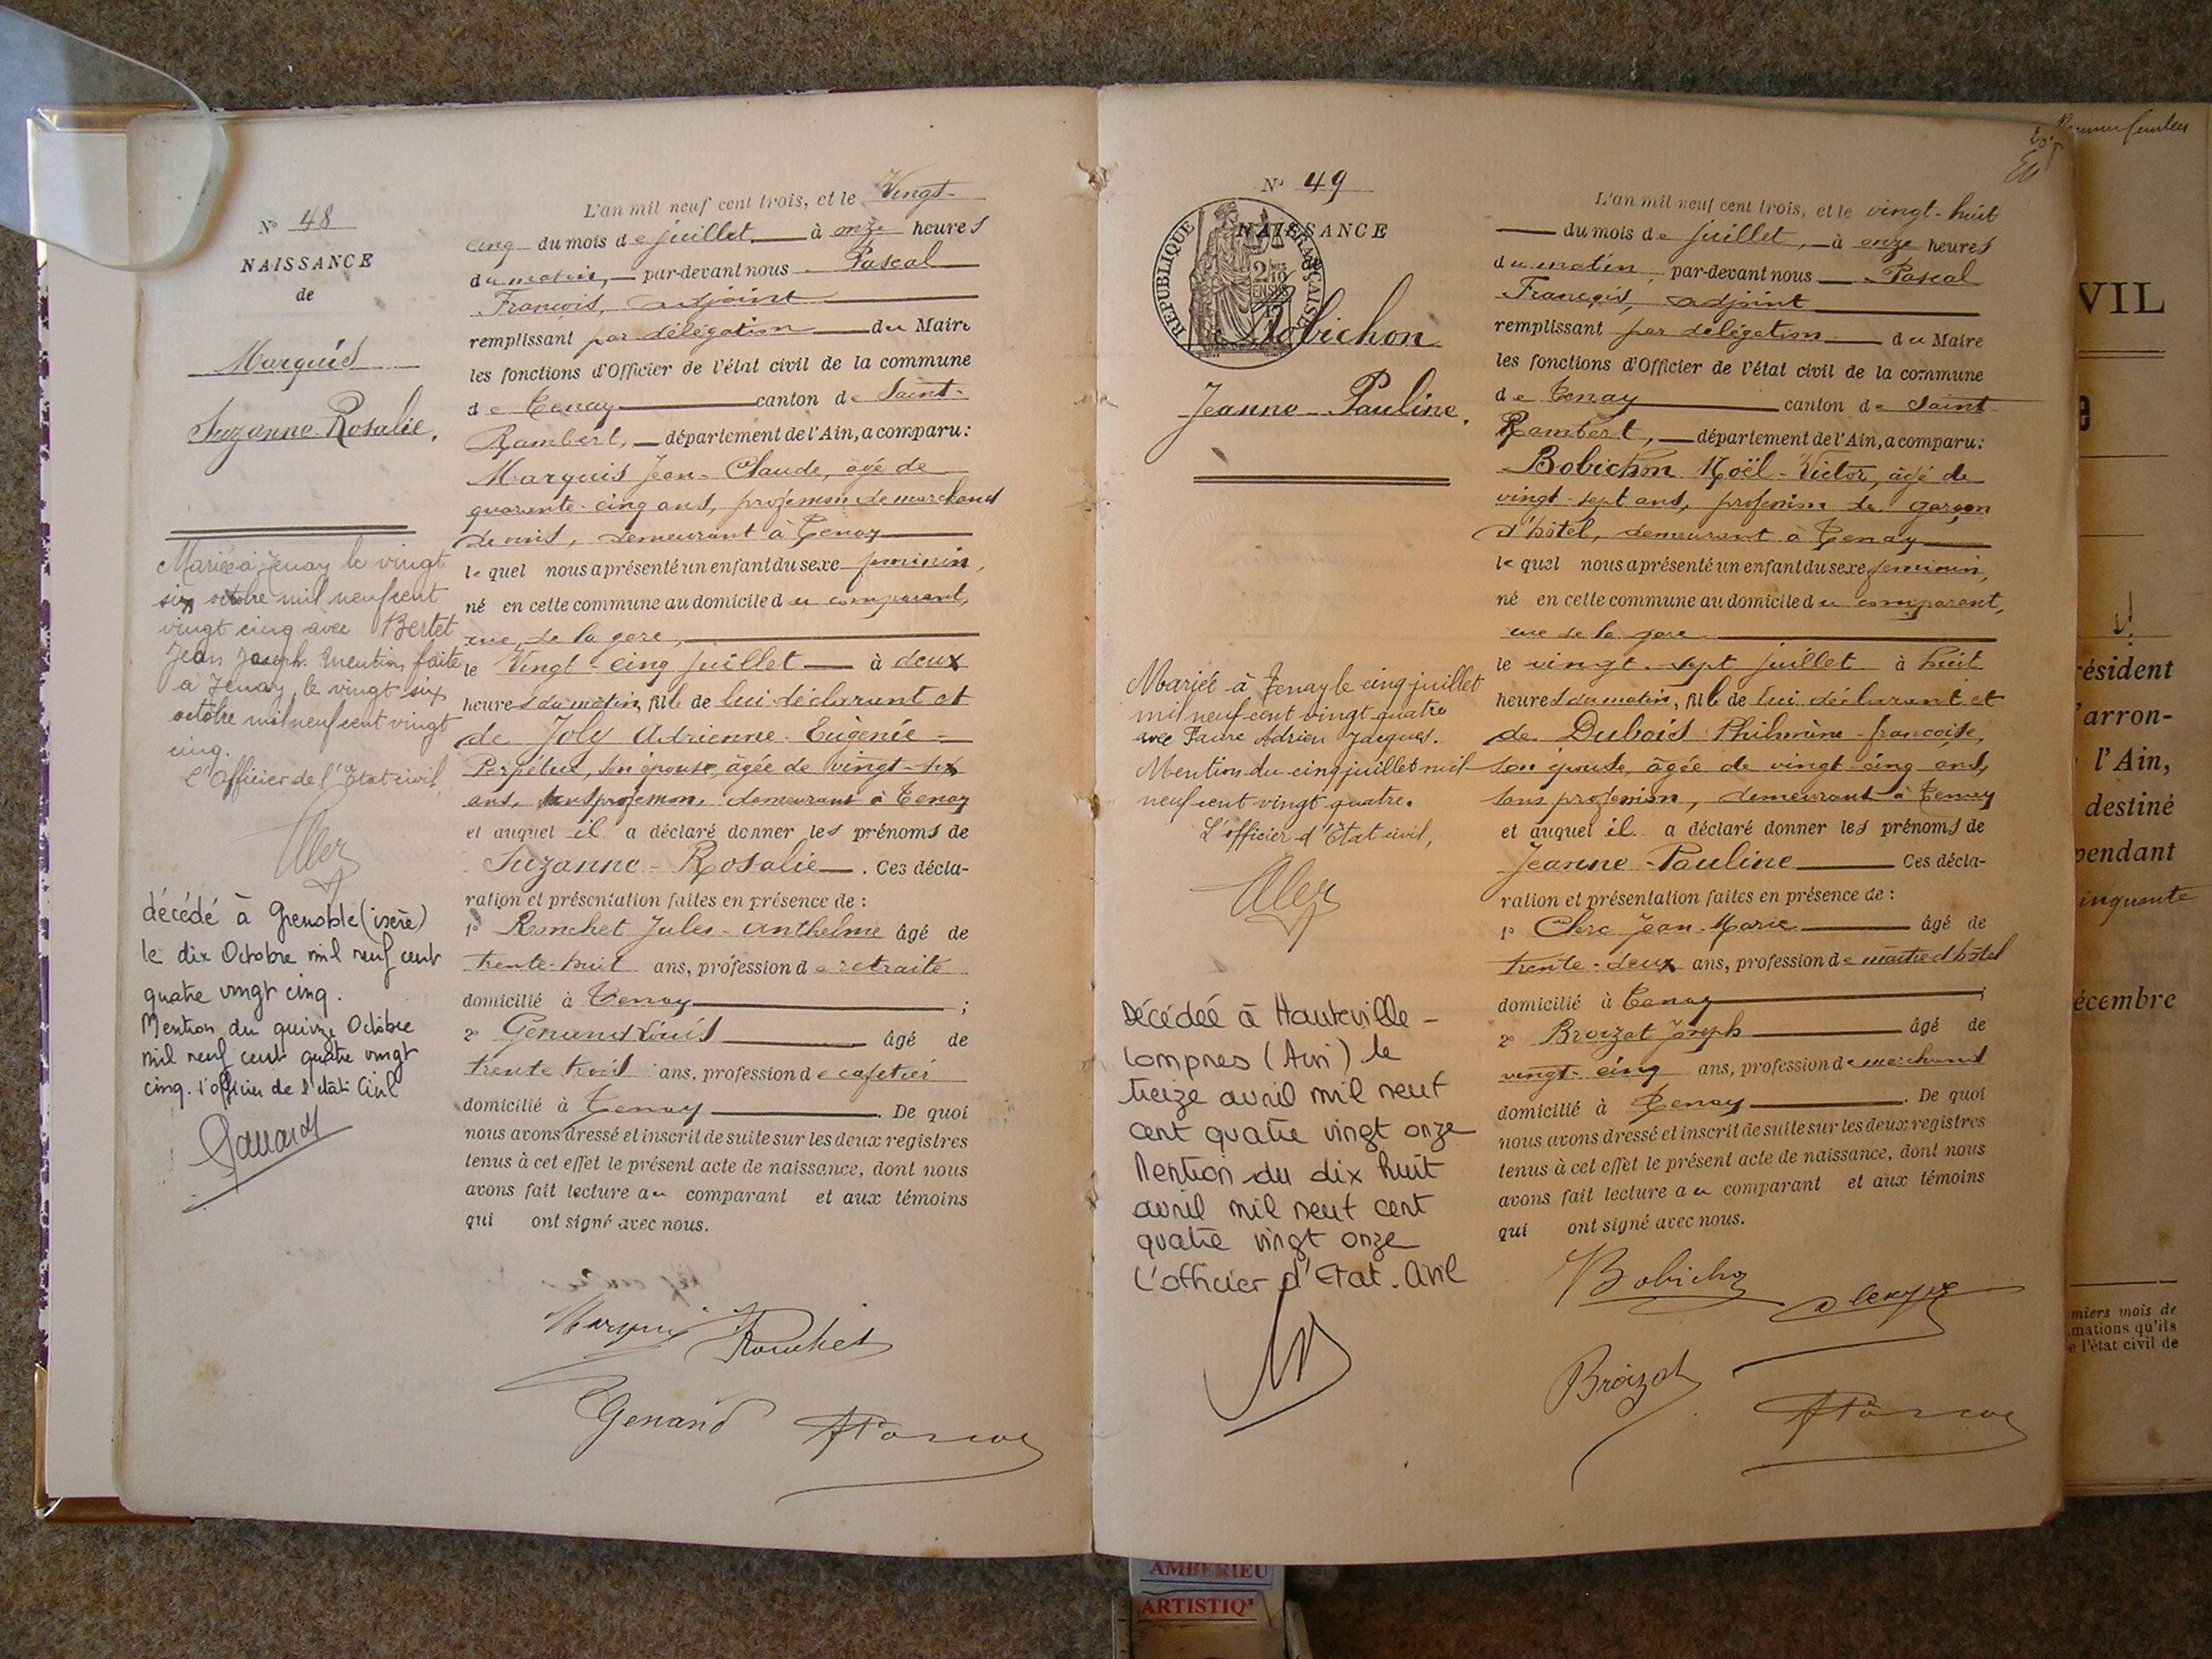 N° 48
NAISSANCE
de
Marquis
Suzanne-Rosalie.
Mariée à Tenay le vingt
six octobre mil neuf cent
vingt cinq avec Bertet
Jean Joseph. Mention faite
à Tenay, le vingt six
octobre mil neuf cent vingt
cinq.
L'Officier de l'Etat civil,
décédé à Grenoble (isère)
le dix Octobre mil neuf cent
quatre vingt cinq.
Mention du quinze Octobre
mil neuf cent quatre vingt
cinq. l'officier de l'état Civil
L'an mil neuf cent trois, et le Vingt-
cinq du mois de juillet à onze heures
du matin, par-devant nous Pascal
François, adjoint
remplissant par délégation du Maire
les fonctions d'Officier de l'état civil de la commune
de Tenay canton de Saint-
Rambert, département de l'Ain, a comparu:
Marquis Jean-Claude, âgé de
quarante-cinq ans, profession de marchand
de vins, demeurant à Tenay
lequel nous a présenté un enfant du sexe feminin,
né en cette commune au domicile du comparant,
rue de la gare,
le Vingt-cinq juillet à deux
heures du matin, fille de lui déclarant et
de Joly Adrienne-Eugènie-
Perpétue, son épouse, âgée de vingt-six
ans, sans profession, demeurant à Tenay
et auquel il a déclaré donner les prénoms de
Suzanne-Rosalie. Ces décla-
ration et présentation faites en présence de :
1° Ronchet Jules-Anthelme âgé de
trente-huit ans, profession de retraité
domicilié à Tenay ;
2° Genand Louis âgé de
trente trois ans, profession de cafetier
domicilié à Tenay. De quoi
nous avons dressé et inscrit de suite sur les deux registres
tenus à cet effet le présent acte de naissance, dont nous
avons fait lecture au comparant et aux témoins
qui ont signé avec nous.
Marquis Ronchet
Genand
N° 49
NAISSANCE
de
REPUBLIQUE FRANÇAISE
Bobichon
Jeanne-Pauline.
Mariée à Tenay le cinq juillet
mil neuf cent vingt quatre
avec Faure Adrien Jacques.
Mention du cinq juillet mil
neuf cent vingt quatre.
L'officier d'Etat civil,
Décédée à Hauteville-
Lompnes (Ain) le
treize avril mil neuf
cent quatre vingt onze
Mention du dix huit
avril mil neuf cent
quatre vingt onze
L'officier d'Etat-Civil
L'an mil neuf cent trois, et le vingt-huit
du mois de juillet, à onze heures
du matin par-devant nous Pascal
François, adjoint
remplissant par délégation du Maire
les fonctions d'Officier de l'état civil de la commune
de Tenay canton de Saint-
Rambert, département de l'Ain, a comparu:
Bobichon Noël-Victor, âgé de
vingt-sept ans, profession de garçon
d'hôtel, demeurant à Tenay
lequel nous a présenté un enfant du sexe feminin,
né en cette commune au domicile du comparant,
rue de la gare
le vingt-sept juillet à huit
heures du matin, fille de lui déclarant et
de Dubois Philomène-françoise,
son épouse, âgée de vingt-cinq ans,
sans profession, demeurant à Tenay
et auquel il a déclaré donner les prénoms de
Jeanne-Pauline Ces décla-
ration et présentation faites en présence de :
1° Clerc Jean-Marie âgé de
trente-deux ans, profession de maître d'hôtel
domicilié à Tenay ;
2° Broizat Joseph âgé de
vingt-cinq ans, profession de marchand
domicilié à Tenay. De quoi
nous avons dressé et inscrit de suite sur les deux registres
tenus à cet effet le présent acte de naissance, dont nous
avons fait lecture au comparant et aux témoins
qui ont signé avec nous.
Bobichon
Broizat
VIL
résident
'arron-
l'Ain,
destiné
pendant
inquante
écembre
miers mois de
mations qu'ils
e l'état civil de
AMBERIEU
ARTISTIQ